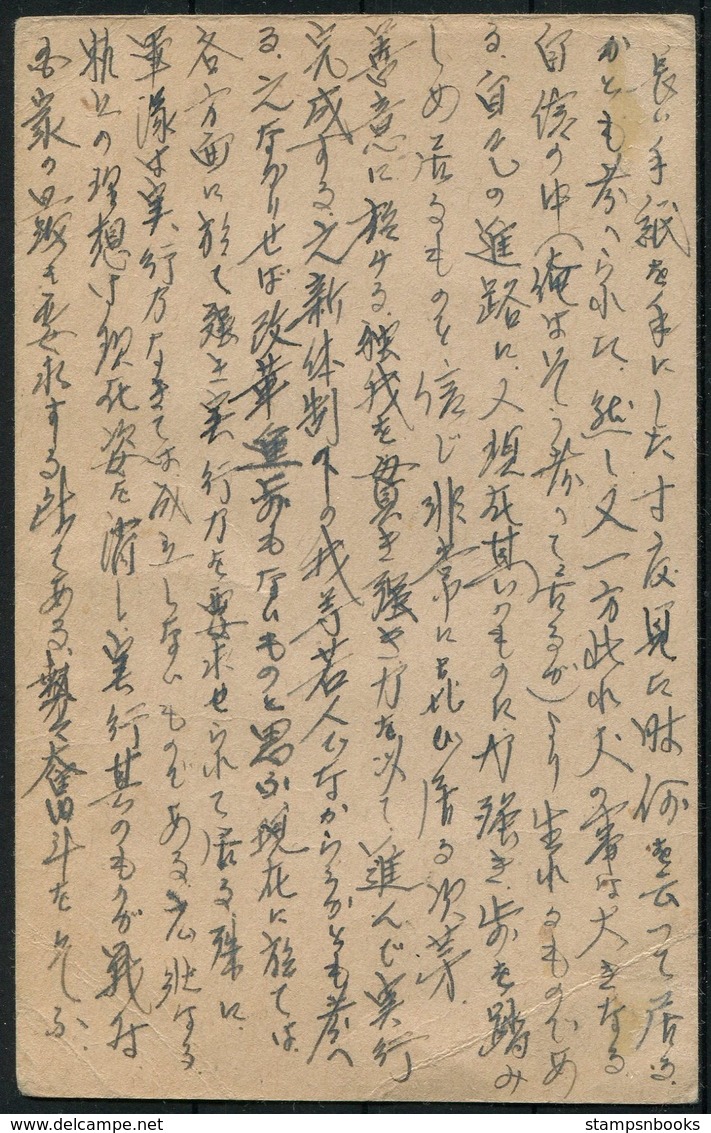 長い手紙を手にした 一寸一度見た時何を云って居る
かとも考へられた、然し又一方此れ丈の事は大きなる
自信の中(俺はそう考って居るが)より生れるものであ
る、自己の進路に、又現在其のものに力強き歩を踏み
しめ居るものと、信じ非常に喜び居る次第、
善意に於ける独我を貫き強き力を以て、進んで実行
完成する、之新体制下の我等若人でなからうかとも考へ
る、之なかりせば改革進歩もないものと思ふ、現在に於ては
各方面に於て強き実行力を要求せられて居る、殊に
軍隊は実行力なきては成立しないものである、
の理想は現在姿を消し、実行其のものが戦時
国家の要求する時である、奮斗を
stampsnbooks